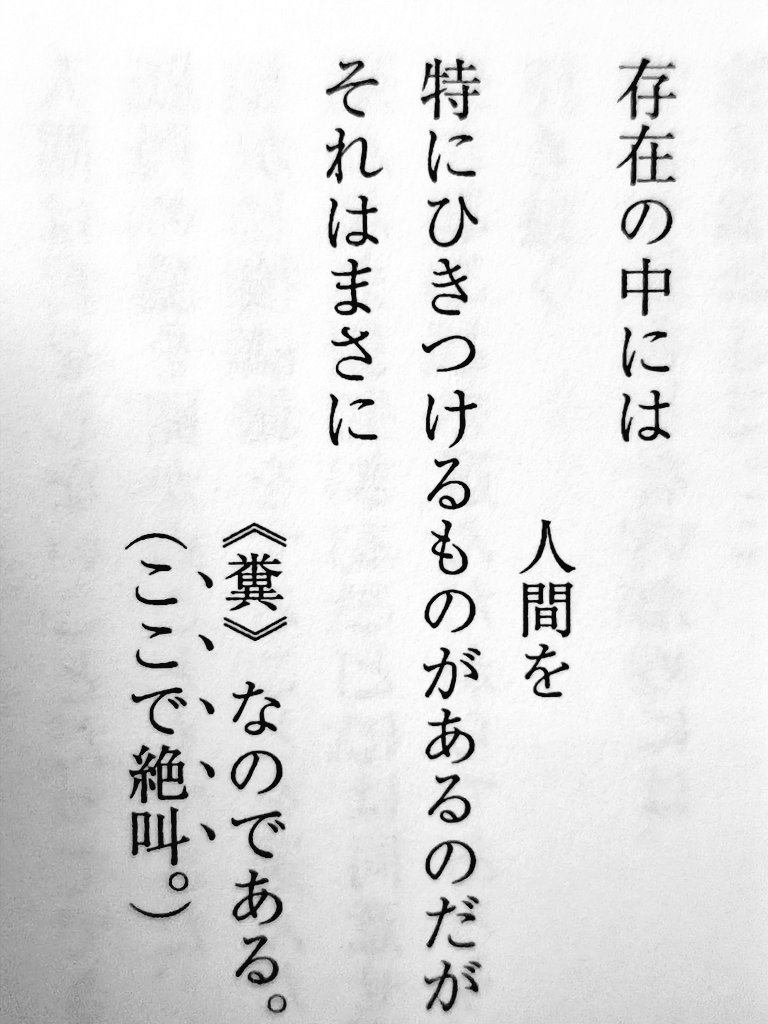 存在の中には
人間を
特にひきつけるものがあるのだが
それはまさに
《糞》なのである。
(ここで絶叫。)